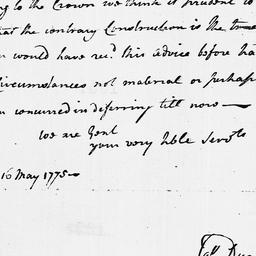 ng to the Crown we think it prudent to
hat the contrary Construction is the true
would have rec.d this advice before ha
ircumstances not material or perhaps
n concurred in deferring till now —
We are Gent
your very hble Servts
16 May 1775 —